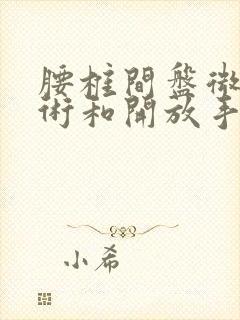 腰柱間盤微
術和開放手
小希